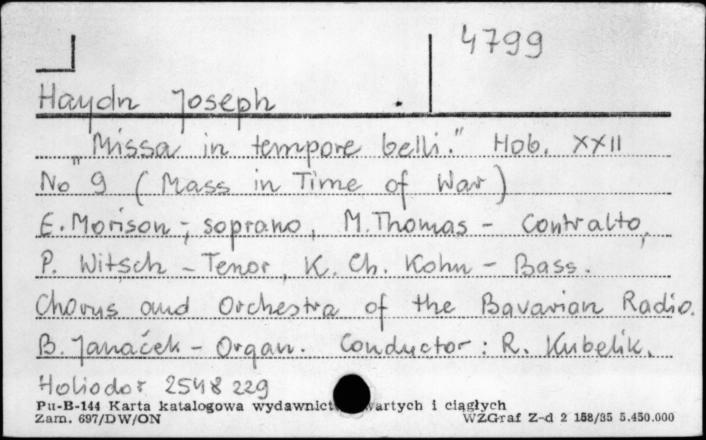 4799
Haydn Joseph
"Missa in tempore belli." Hob. XXII
No 9 (Mass in Time of War)
E. Morison - soprano, M. Thomas - Contralto,
P. Witsch - Tenor, K. Ch. Kohn - Bass.
Chorus and Orchestra of the Bavarian Radio.
B. Janaček - Organ. Conductor: R. Kubelik.
Holiodor 2548 229
Pu-B-144 Karta katalogowa wydawnictw zwartych i ciągłych
Zam. 697/DW/ON WZGraf Z-d 2 158/85 5.450.000